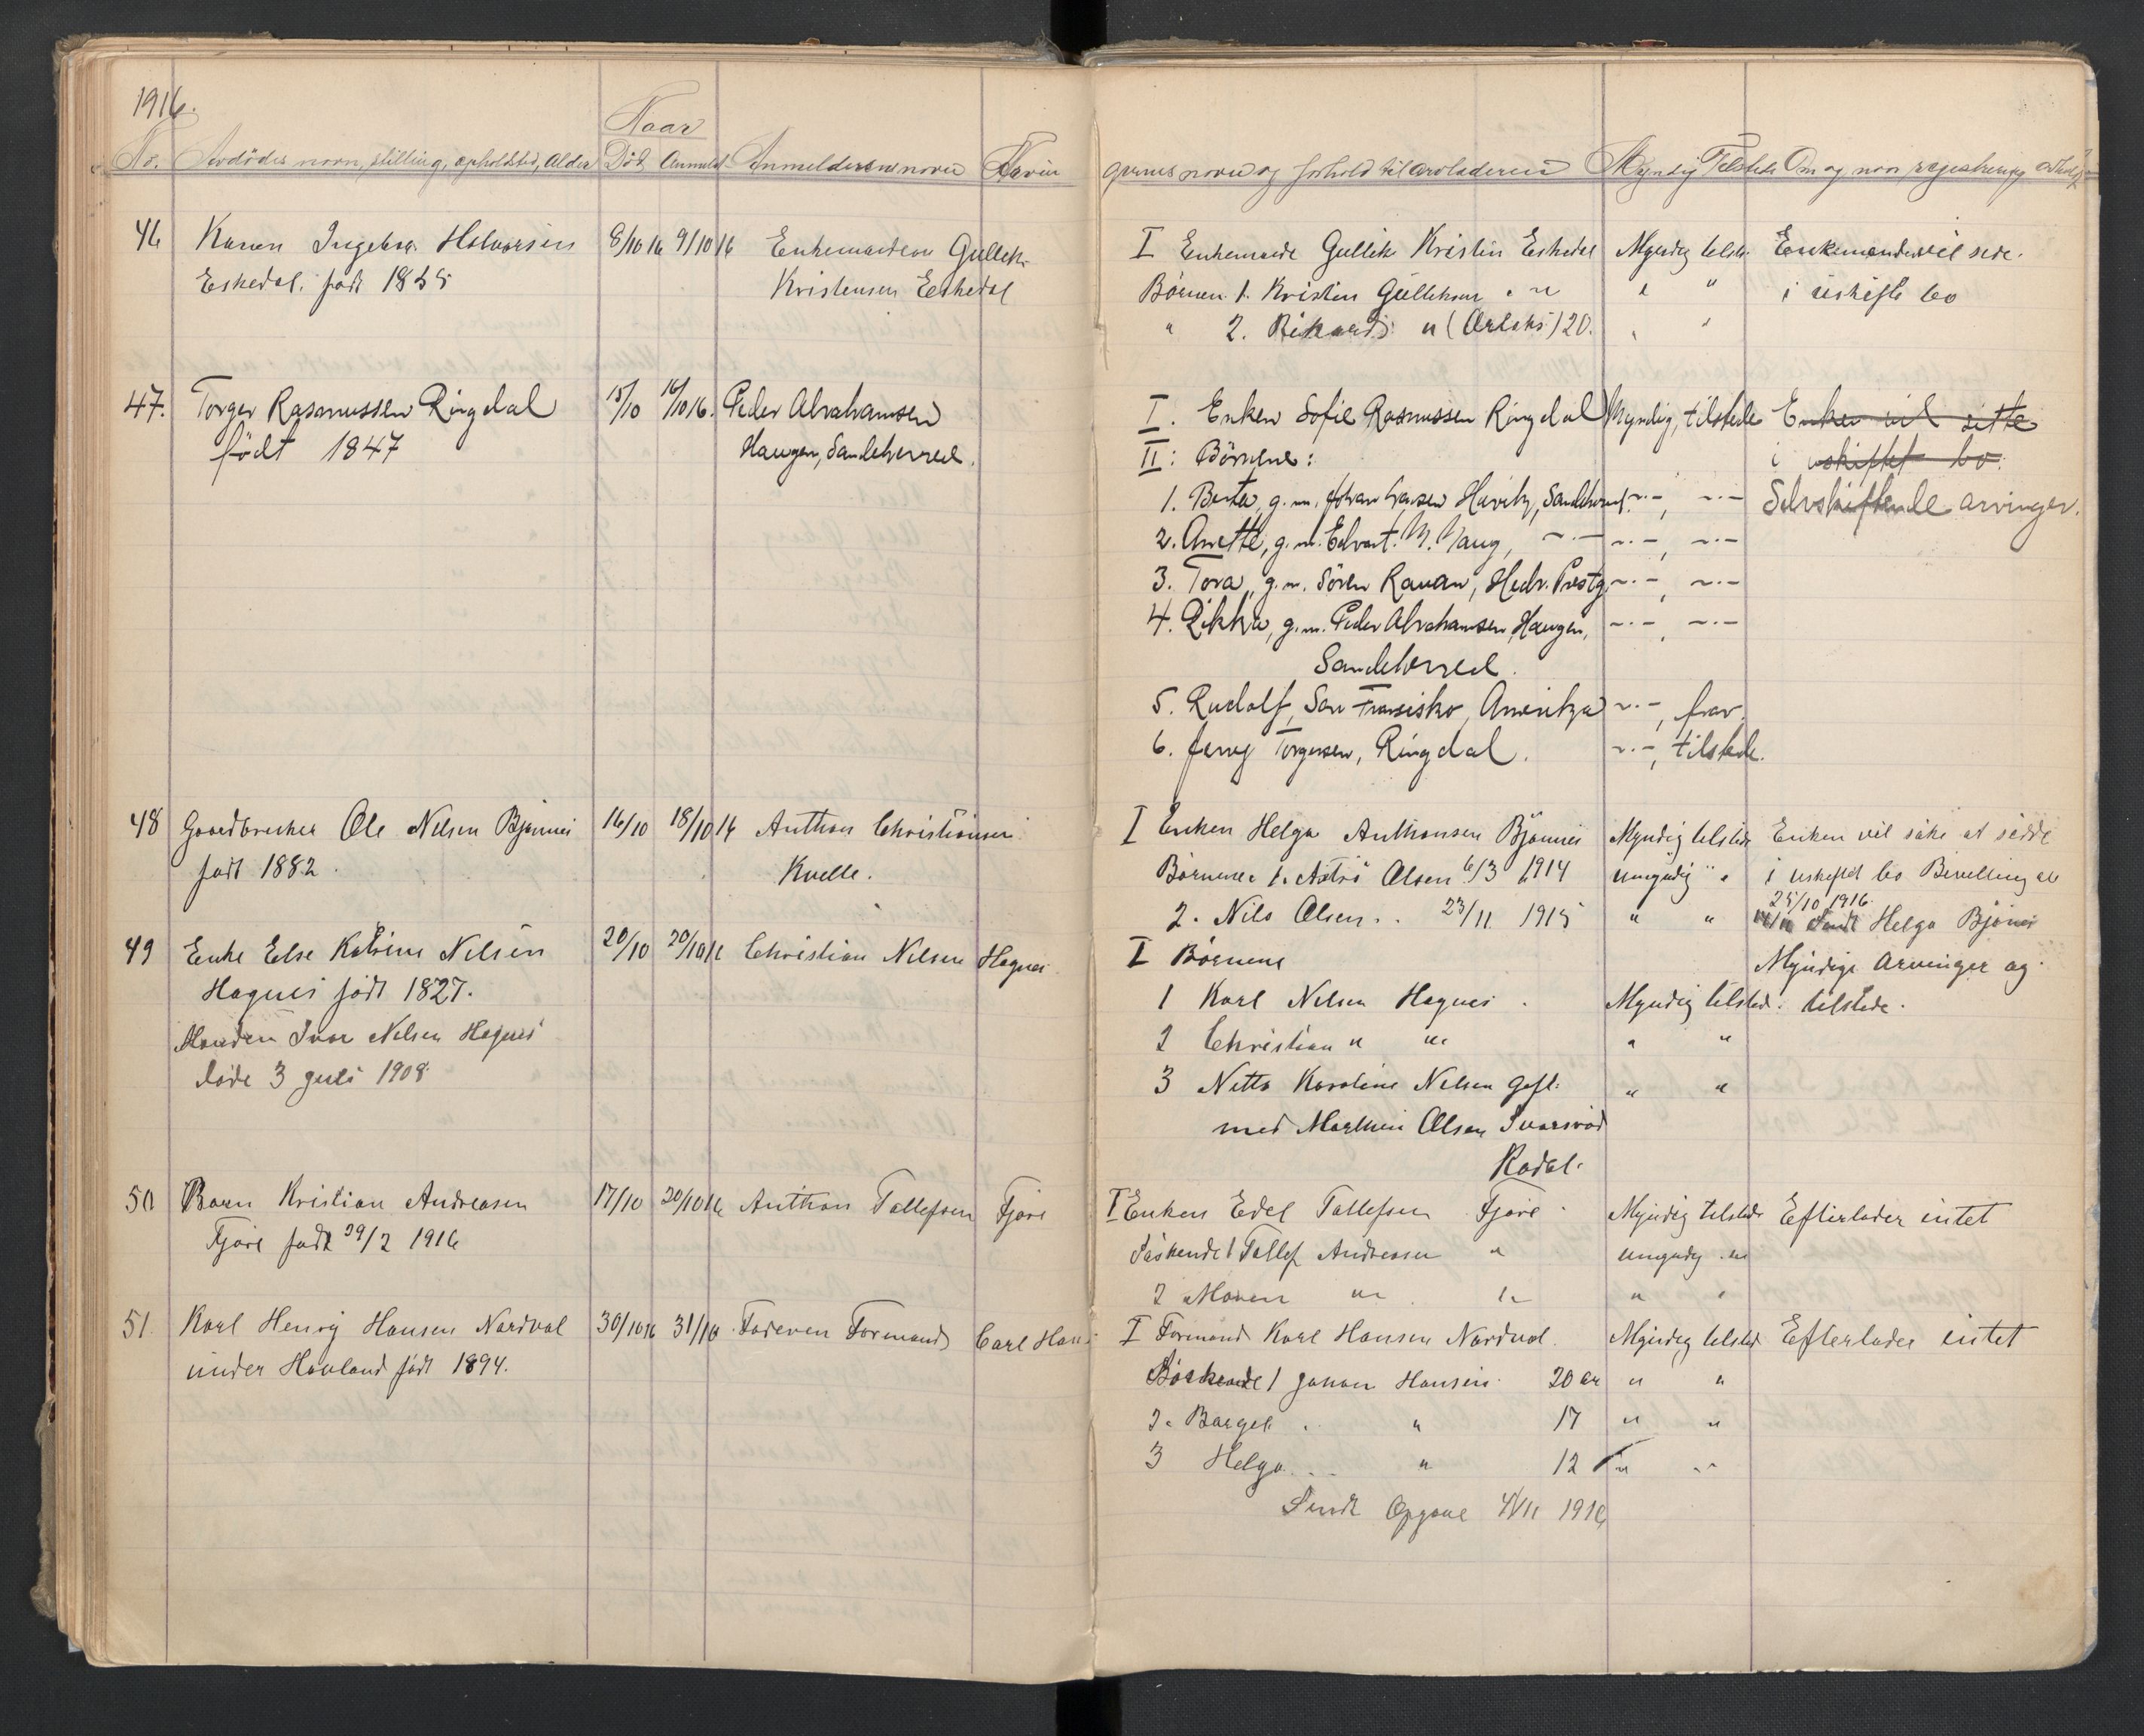 1916.
Naar
No. Avdødes navn, stilling, opholdsted, Alder Død Anmeldt Anmelderens navn Arvin
gernes navn og forhold til arvladeren Myndig Tilstede Om og naar registrering
46 Karen Ingebor Halvorsen 8/10 16 9/10 16 Enkemanden Gullik
Eskedal. født 1855 Kristensen Eskedal
I Enkemande Gullik Kristen Eskedal Myndig tilste. Enkemanden vil sede.
Børnen 1. Kristen Gulliksen " " " " i uskifte bo
" 2. Rikard " 20. " "
47. Torger Rasmussen Ringdal 15/10 16/10 16. Peder Abrahamsen
født 1847 Haugen, Sandeherred.
I. Enken Sofie Rasmussen Ringdal Myndig, tilstede Enken vil sitte
II: Børnene: i uskiftet bo.
1. Berta, g.m. Johan Hansen Sandeherred. -"-, -"- Selvskiftende arvinger.
2. Anette, g.m. Edvart. M. Haug, -"- -"-, -"-
3. Tora, g.m. Søren Ravan, Hedr. Prestg. -"-, -"-
4. Rikka, g.m. Peder Abrahamsen, Haugen, -"-, -"-
Sandeherred.
5. Rudolf, San Fransisko, Amerika -"-, frav.
6. Jenny Torgersen, Ringdal. -"-, tilstede.
48 Gaardbruker Ole Nilsen Bjønnes 16/10 18/10 16 Anthon Christiansen
født 1882. Kvelle.
I Enken Helga Anthonsen Bjønnes Myndig tilstede Enken vil søke at sidde
Børnene 1. Olsen 6/3 1914 umyndig " i uskiftet bo Bevilling av
25/10 1916.
2. Nils Olsen .. 23/11 1915 " " Sendt Helga Bjønnes
49 Enke Else Katrine Nilsen 20/10 20/10 16 Christian Nilsen Hagnes
Hagnes født 1827.
Manden Ivar Nilsen Hagnes
døde 3 juli 1908
I Børnene Myndige Arvinger og
1 Karl Nilsen Hagnes . Myndig tilsted. tilstede.
2 Christian " " " "
3 Netta Karoline Nilsen Gift. " "
med Marthin Olsen Svarsrød
Kodal.
50 Barn Kristian Andreasen 17/10 20/10 16 Anthon Tallefsen Fjøre
Fjøre født 29/2 1916
I Enken Edel Tallefsen Fjøre Myndig tilstede Efterlader intet
Søskende 1 Tallef Andreasen " umyndig "
2 Maren " " " "
51. Karl Henrij Hansen Nordval 30/10 16 31/10 Faderen Formand Carl Hans
under Havland født 1894.
I Formand Karl Hansen Nordval. Myndig tilsted Efterlader intet
Søskende 1 Johan Hansen 20 år " "
2. Borgel. " 17 " "
3 Helga .. " 12 " "
Sendt Opgave 4/11 1916